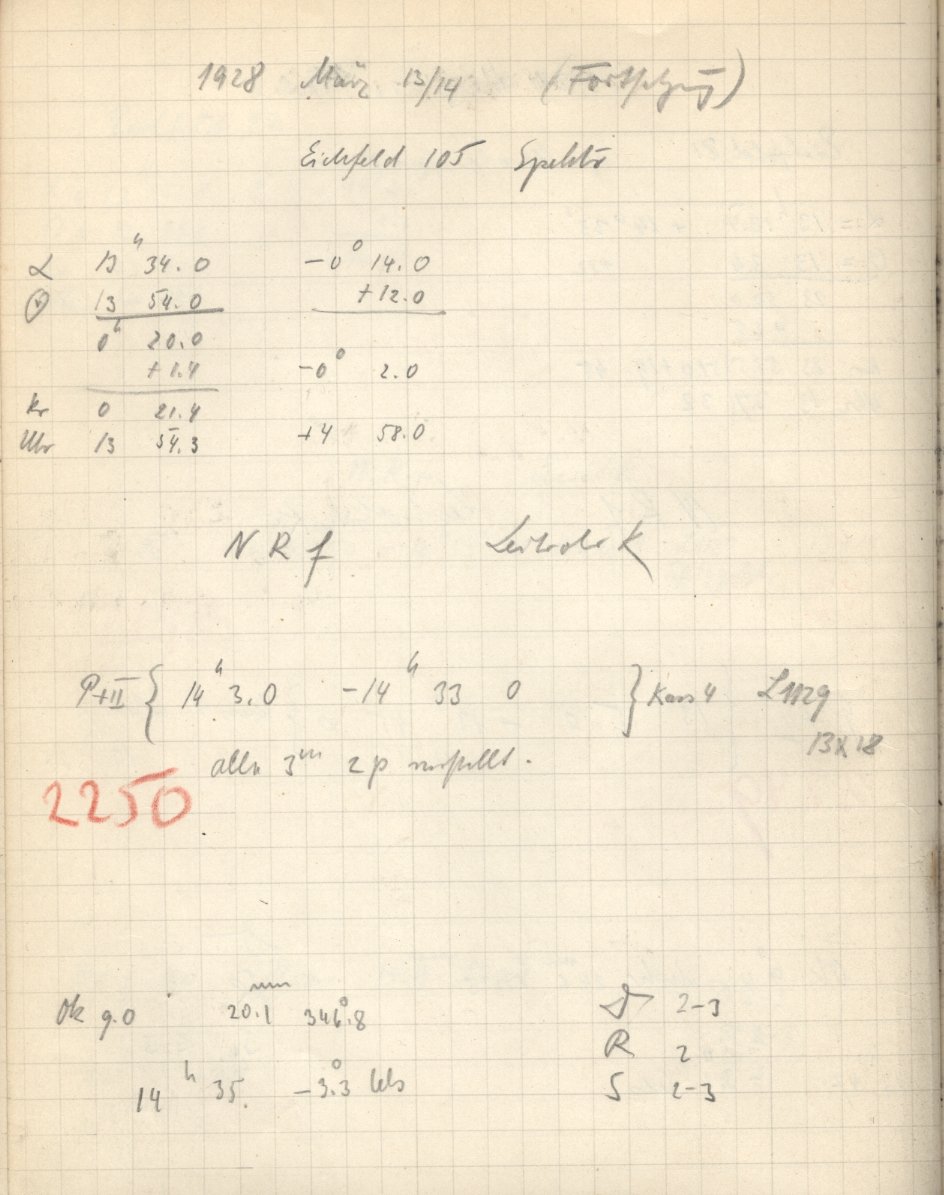 1928 März 13/14 (Fortsetzung)
Eichfeld 105 Spektr
α 13ʰ 34.0 −0° 14.0
13 54.0 +12.0
0ʰ 20.0
+1.4 −0° 2.0
Kr 0 21.4
Uhr 13 54.3 +4 58.0
N R f Leitrohr K
P+II { 14ʰ 3.0 −14ʰ 33 0 } Kass 4
13X18
alle 3ᵐ 2p verstellt.
2250
Ok 9.0 20.1ᵐᵐ 346°.8 D 2-3
R 2
14ʰ 35. −3°.3 S 2-3